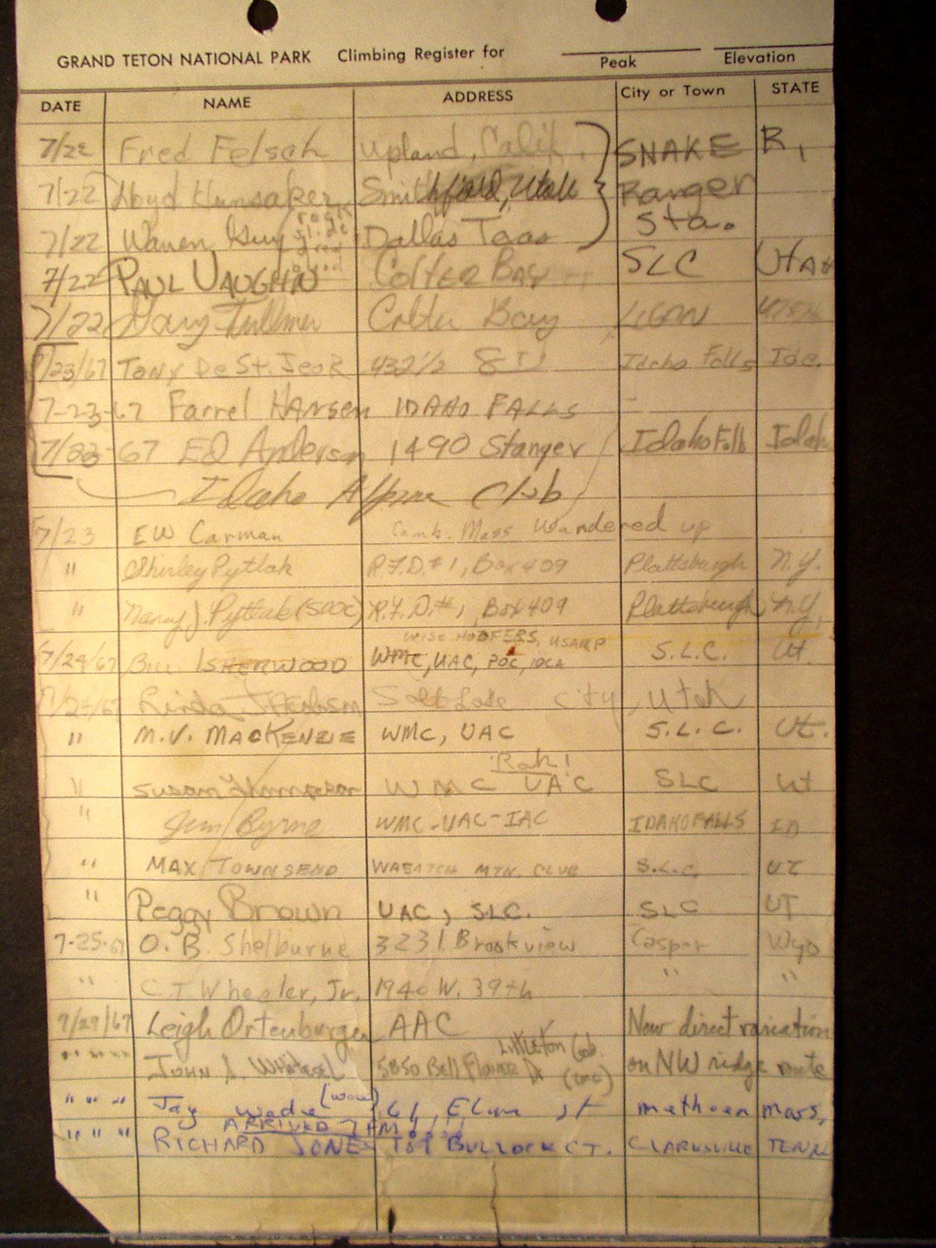 GRAND TETON NATIONAL PARK Climbing Register for
Peak Elevation
DATE NAME ADDRESS City or Town STATE
7/22 Fred Felsch Upland, Calif. SNAKE R,
7/22 Lloyd Hunsaker Smithfield, Utah Ranger
7/22 Warren Guy rock slide Dallas Texas Sta.
7/22 PAUL VAUGHN Colter Bay SLC Utah
7/22 Gary Fullmer Colter Bay LOGAN UTAH
7/23/67 Tony De St. Jeor 432 1/2 8th Idaho Falls Ida.
7-23-67 Farrel Hansen IDAHO FALLS
7/23-67 Ed Anderson 1490 Stanger Idaho Falls Idah
Idaho Alpine Club
7/23 EW Carman Camb. Mass Wandered up
" Shirley Pytlak R.F.D. #1, Box 409 Plattsburgh N.Y.
" Nancy J. Pytlak R.F.D. #1, Box 409 Plattsburgh N.Y.
USARP
7/24/67 Bill ISHERWOOD WMC, UAC, POC, S.L.C. Ut.
7/24/67 Salt Lake City, Utah
" M.V. MACKENZIE WMC, UAC S.L.C. Ut.
Rah!
" Susan Thompson WMC UAC SLC Ut
" Jim Byrne WMC-UAC-IAC IDAHO FALLS ID
" MAX TOWNSEND WASATCH MTN. CLUB S.L.C. UT
" Peggy Brown UAC, SLC. SLC UT
7-25-67 O. B. Shelburne 3231 Brookview Casper Wyo
" C.T. Wheeler, Jr. 1940 W. 39th " "
9/29/67 Leigh Ortenburger AAC New direct variation
LITTLETON Colo.
" " " John S. 5850 Bell Flower Dr on NW ridge route
" " " Jay Wade (wow) 61, Elm st methuen mass,
ARRIVED 7 PM!!!!
" " " RICHARD JONES BULLOCK CT. CLARKSVILLE TENN